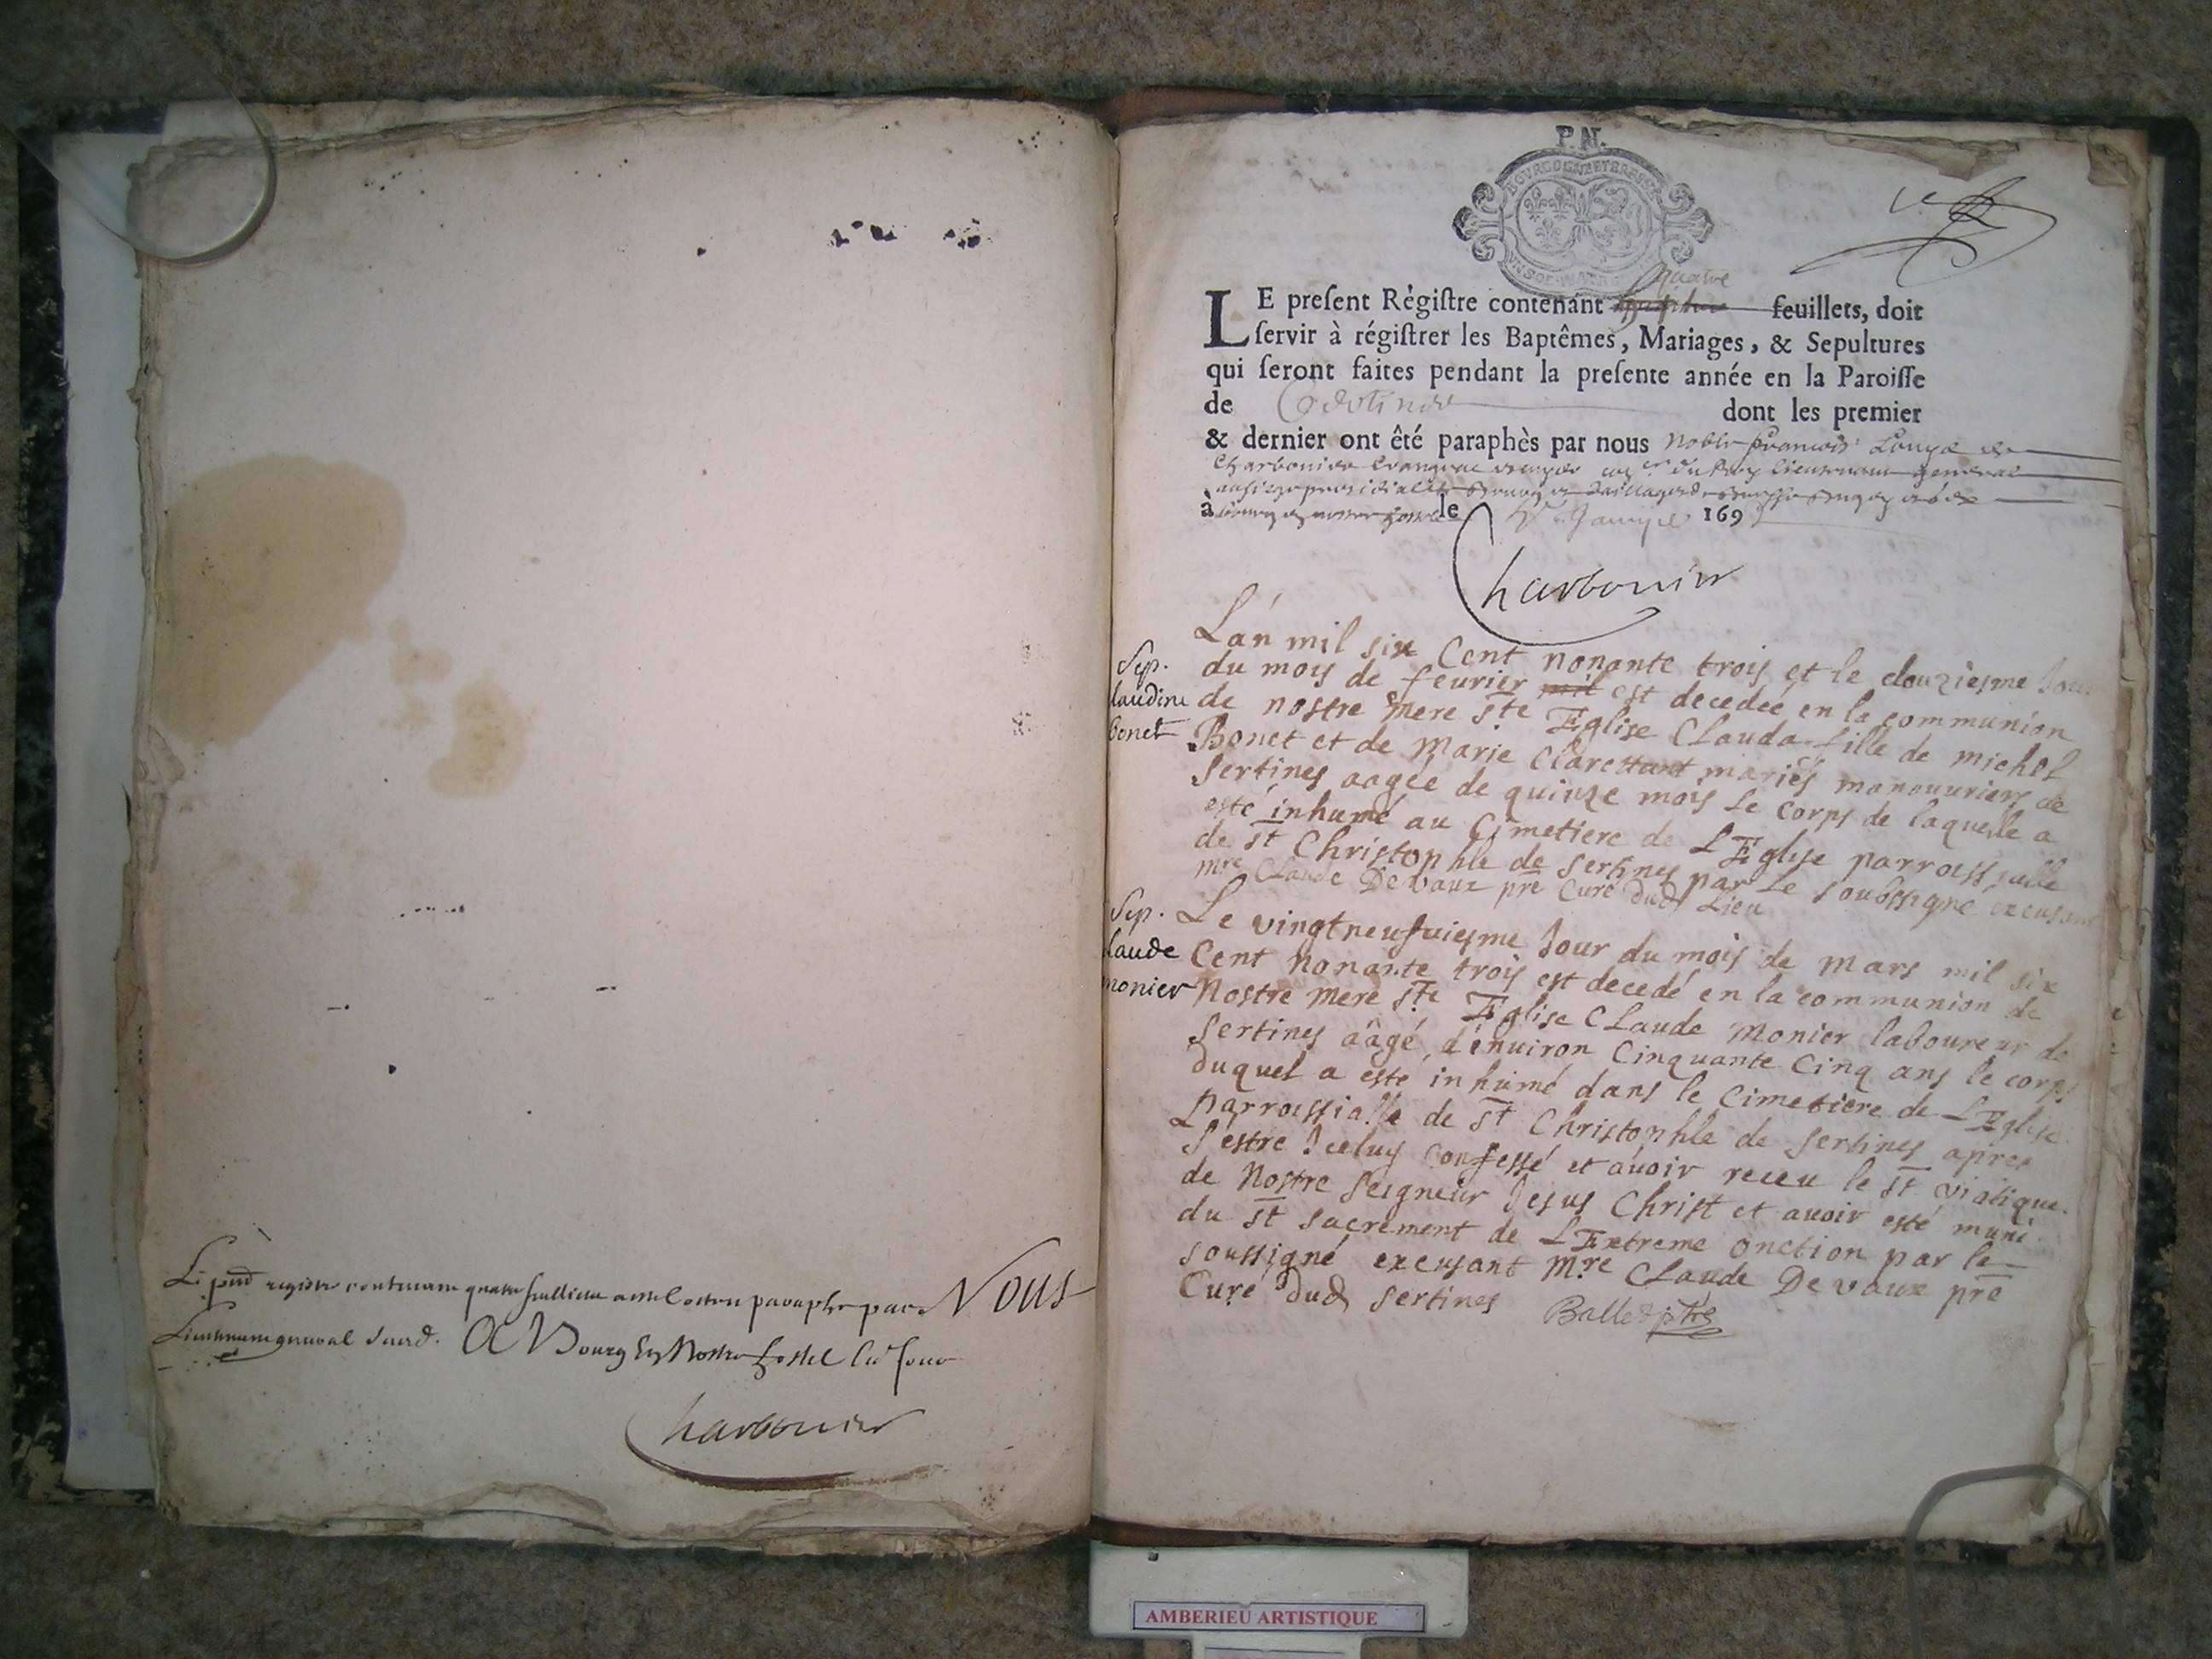 Le pnt registre contenant quatre feuillets a esté cotté et paraphé par Nous
Lieutenant general susd. A Bourg en Nostre hostel led. jour
Charbonier
P. M.
BOURGOGNE ET BRESSE
quatre
LE preſent Règiſtre contenant feuillets, doit
ſervir à régiſtrer les Baptêmes, Mariages, & Sepultures
qui ſeront faites pendant la preſente année en la Paroiſſe
de dont les premier
& dernier ont êté paraphès par nous Noble François
Charbonier lieutenant general
à Bourg en nostre hostel le Janvier 169
Charbonier
Sep.
laudine
bonet
L'an mil six Cent nonante trois et le douziesme Jour
du mois de feurier mil est decedée en la communion
de nostre mere ste Eglise Clauda fille de michel
Bonet et de Marie Clarettant mariés manouuriers de
Sertines aagée de quinze mois le corps de laquelle a
esté inhumé au Cimetiere de L'Eglise parroissialle
de st Christophle de Sertines par Le soubssigné excusant
mre Claude De vaux pre Curé dud Lieu
Sep.
laude
monier
Le vingtneufuiesme Jour du mois de mars mil six
Cent nonante trois est decedé en la communion de
Nostre mere ste Eglise CLaude Monier laboureur de
Sertines aâgé d'enuiron Cinquante Cinq ans le corps
duquel a esté inhumé dans le Cimetiere de L'Eglise
parroissialle de st Christophle de Sertines apres
s'estre Iceluy confessé et auoir receu le st viatique
de Nostre Seigneur Jesus Christ et auoir esté muni
du st sacrement de L'Extreme onction par le
soussigné excusant Mre CLaude De vaux pre
Curé dud Sertines Ballet ptre
AMBERIEU ARTISTIQUE